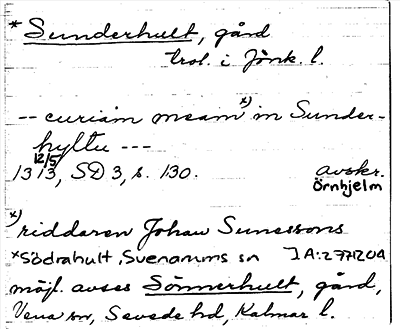 * Sunderhult, gård
trol. i Jönk. l.
-- curiam meam x) in Sunder-
hyltu ---
12/5
1313, SD 3, s. 130. avskr.
Örnhjelm
x) riddaren Johan Sunessons
*Södrahult, Svenarums sn JA:277120A
möjl. avses Sönnerhult, gård,
Vena sn, Sevede hd, Kalmar l.